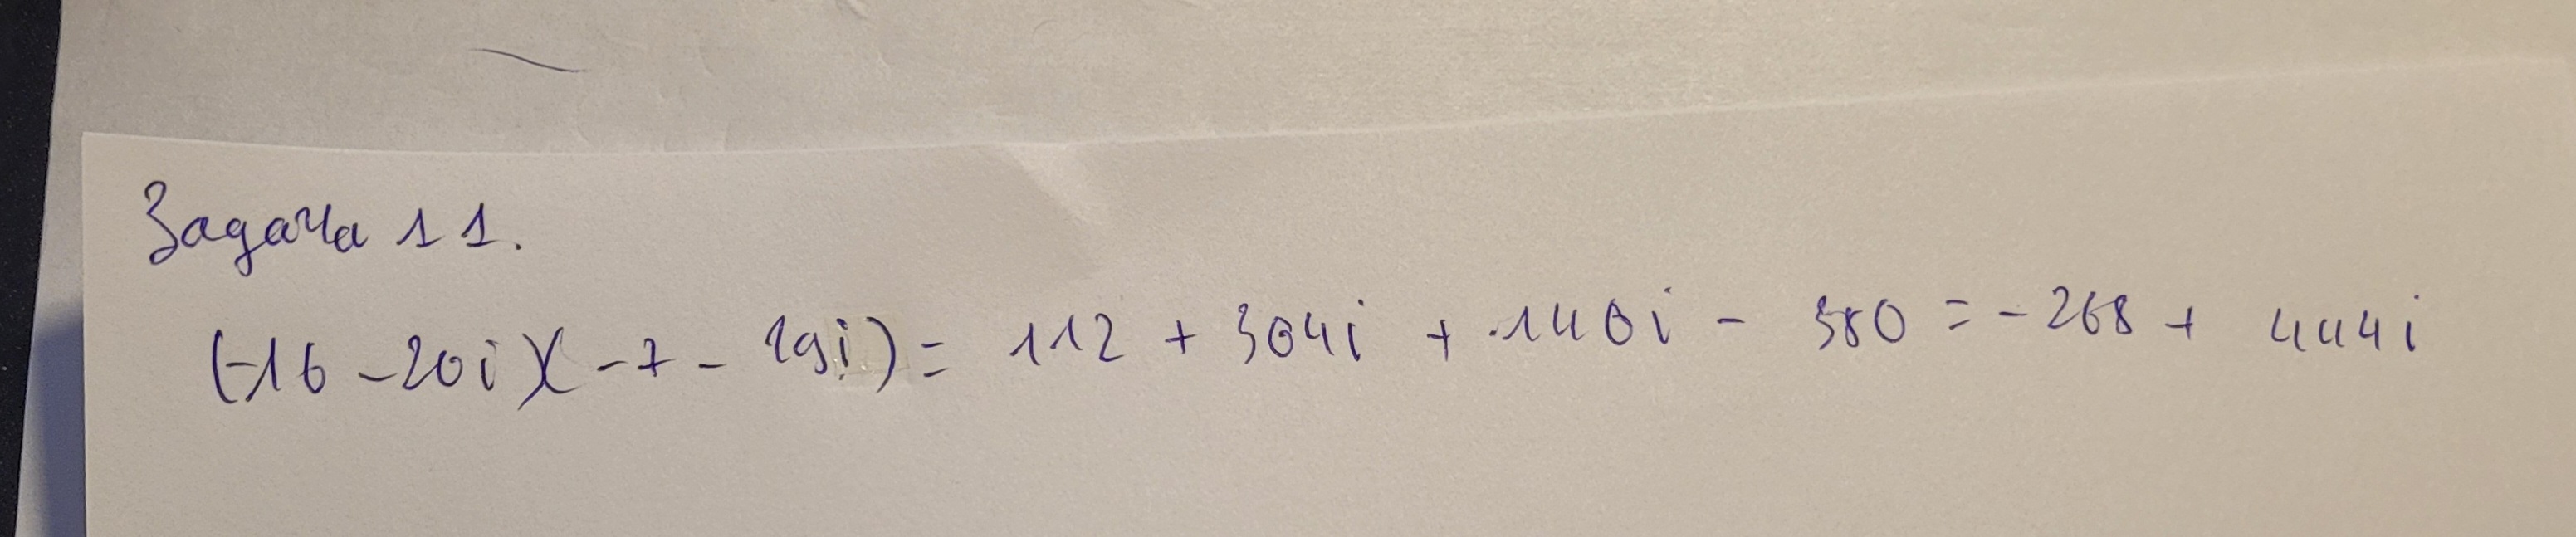 Задача 11.
(-16 -20i)(-7 - 19i) = 112 + 304i + 140i - 380 = -268 + 444i